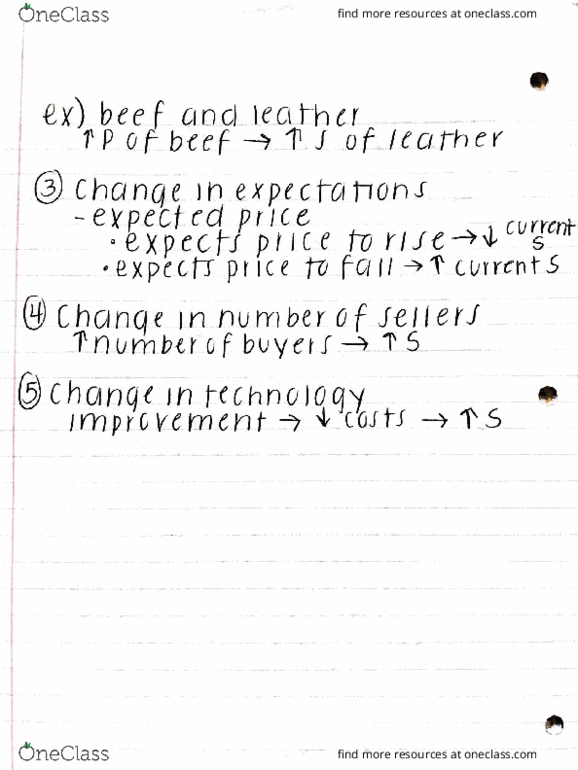 OneClass find more resources at oneclass.com
ex) beef and leather
↑ P of beef → ↑ S of leather
③ Change in expectations
- expected price
• expects price to rise → ↓ current S
• expects price to fall → ↑ current S
④ Change in number of sellers
↑ number of buyers → ↑ S
⑤ Change in technology
improvement → ↓ costs → ↑ S
OneClass find more resources at oneclass.com